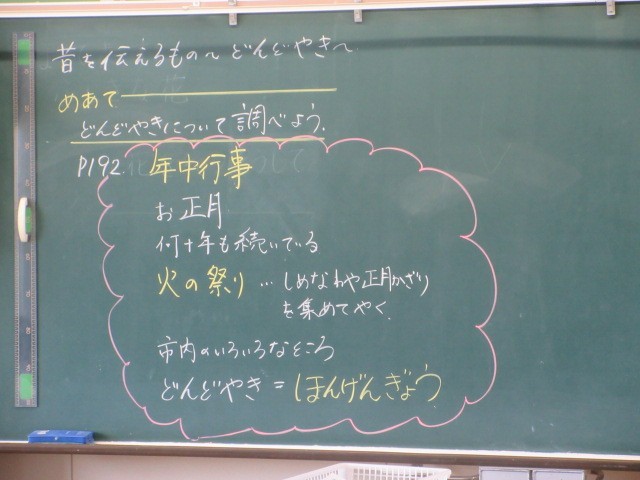 昔を伝えるもの〜どんどやき〜
めあて
どんどやきについて調べよう。
P192. 年中行事
お正月
何十年も続いている
火の祭り … しめなわや正月かざり
を集めてやく
市内のいろいろなところ
どんどやき = ほんげんぎょう